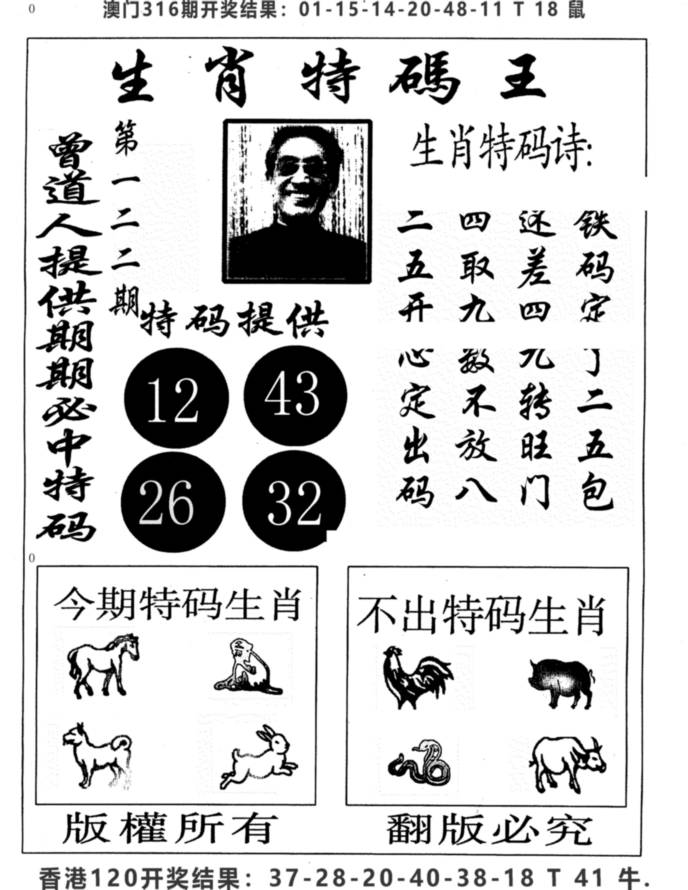 0
澳门316期开奖结果：01-15-14-20-48-11 T 18 鼠
生肖特碼王
曾道人提供期期必中特码
第一二二期
生肖特码诗:
铁码定了二五包
还差四九转旺门
四取九数不放八
二五开心定出码
特码提供
12
43
26
32
0
今期特码生肖
不出特码生肖
版權所有
翻版必究
香港120开奖结果：37-28-20-40-38-18 T 41 牛.